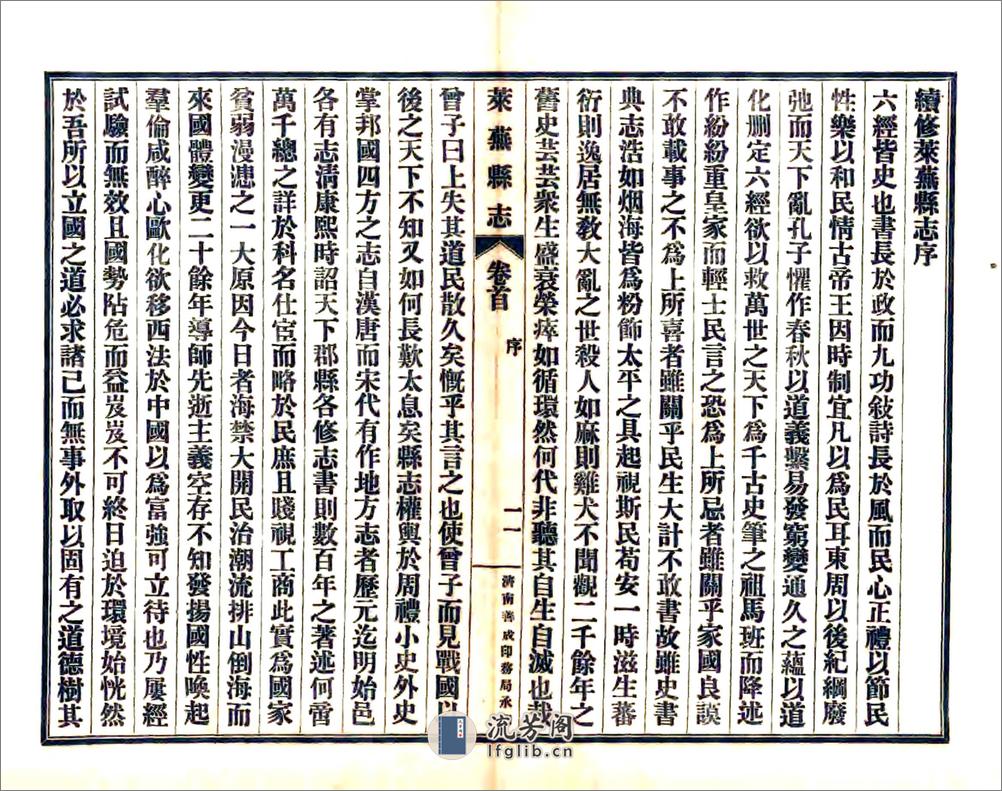 續修萊蕪縣志序
六經皆史也書長於政而九功敍詩長於風而民心正禮以節民
性樂以和民情古帝王因時制宜凡以爲民耳東周以後紀綱廢
弛而天下亂孔子懼作春秋以道義繫易發窮變通久之蘊以道
化刪定六經欲以救萬世之天下爲千古史筆之祖馬班而降述
作紛紛重皇家而輕士民言之恐爲上所忌者雖關乎家國良謨
不敢載事之不爲上所喜者雖關乎民生大計不敢書故雖史書
典志浩如烟海皆爲粉飾太平之具起視斯民苟安一時滋生蕃
衍則逸居無敎大亂之世殺人如麻則雞犬不聞觀二千餘年之
舊史芸芸衆生盛衰榮瘁如循環然何代非聽其自生自滅也哉
萊蕪縣志 卷首 序 一 濟南善成印務局承
曾子曰上失其道民散久矣慨乎其言之也使曾子而見戰國以
後之天下不知又如何長歎太息矣縣志權輿於周禮小史外史
掌邦國四方之志自漢唐而宋代有作地方志者歷元迄明始邑
各有志淸康熙時詔天下郡縣各修志書則數百年之著述何啻
萬千總之詳於科名仕宦而略於民庶且賤視工商此實爲國家
貧弱漫漶之一大原因今日者海禁大開民治潮流排山倒海而
來國體變更二十餘年導師先逝主義空存不知發揚國性喚起
羣倫咸醉心歐化欲移西法於中國以爲富強可立待也乃屢經
試驗而無效且國勢阽危而益岌岌不可終日迫於環境始恍然
於吾所以立國之道必求諸己而無事外取以固有之道德樹其
流芳阁
lfglib.cn